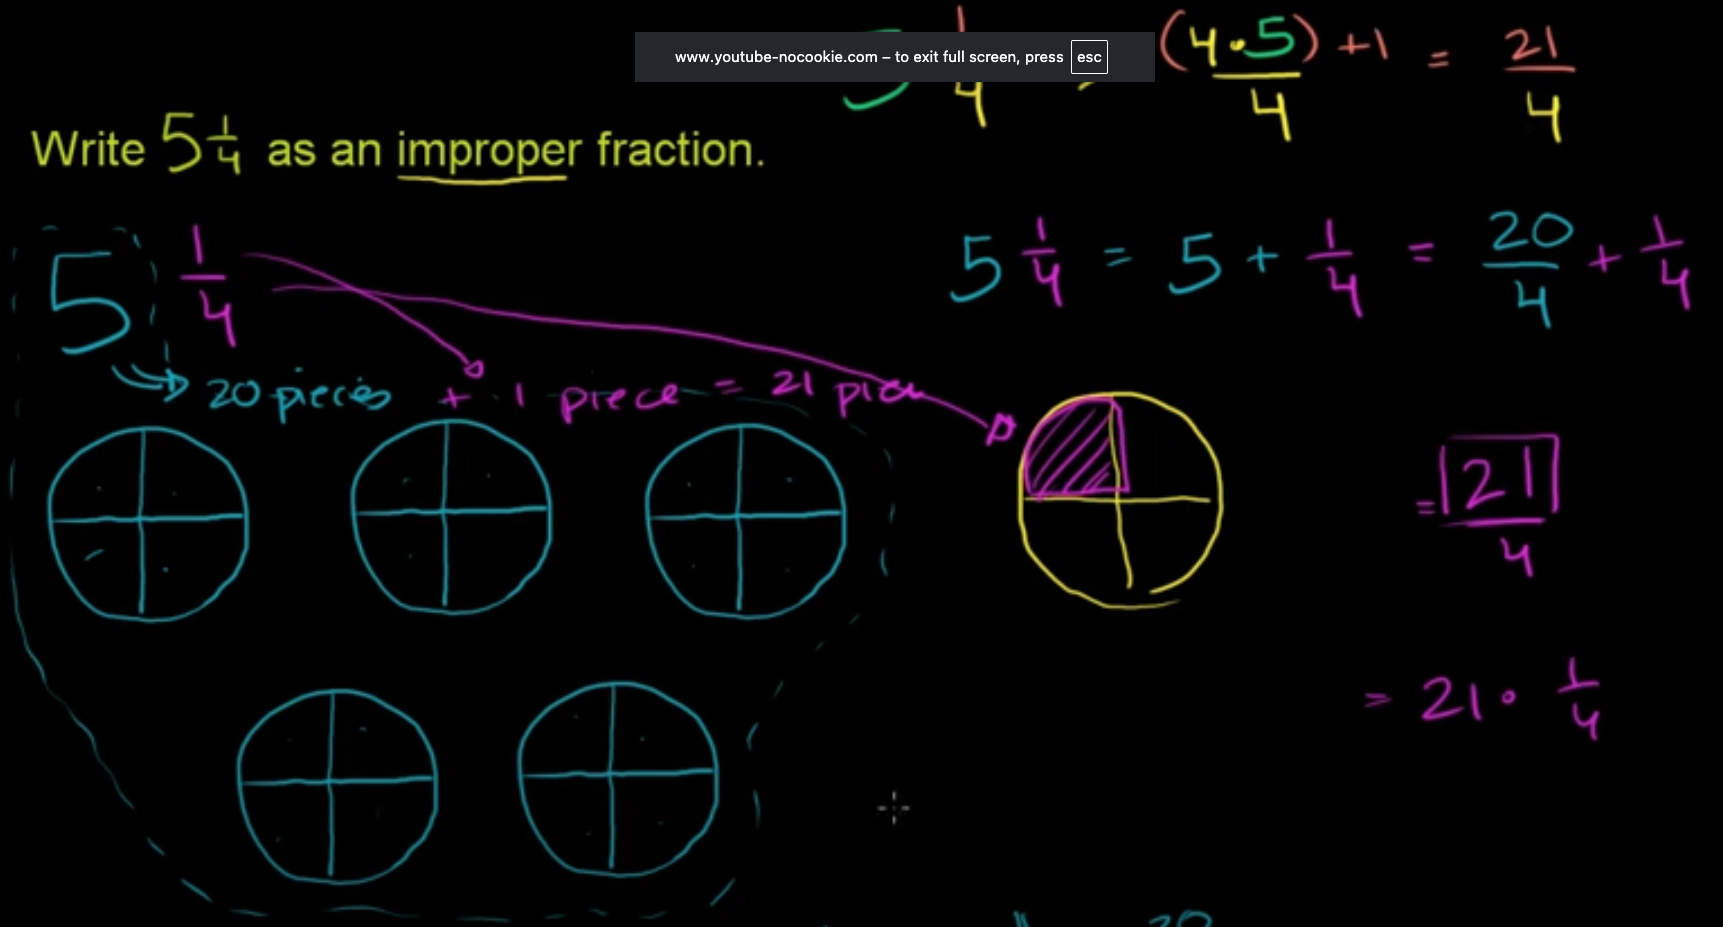 www.youtube-nocookie.com – to exit full screen, press esc
5 1/4 (4·5) + 1 / 4 = 21/4
Write 5 1/4 as an improper fraction.
5 1/4
5 1/4 = 5 + 1/4 = 20/4 + 1/4
20 pieces + 1 piece = 21
= 21/4
= 21 · 1/4
20